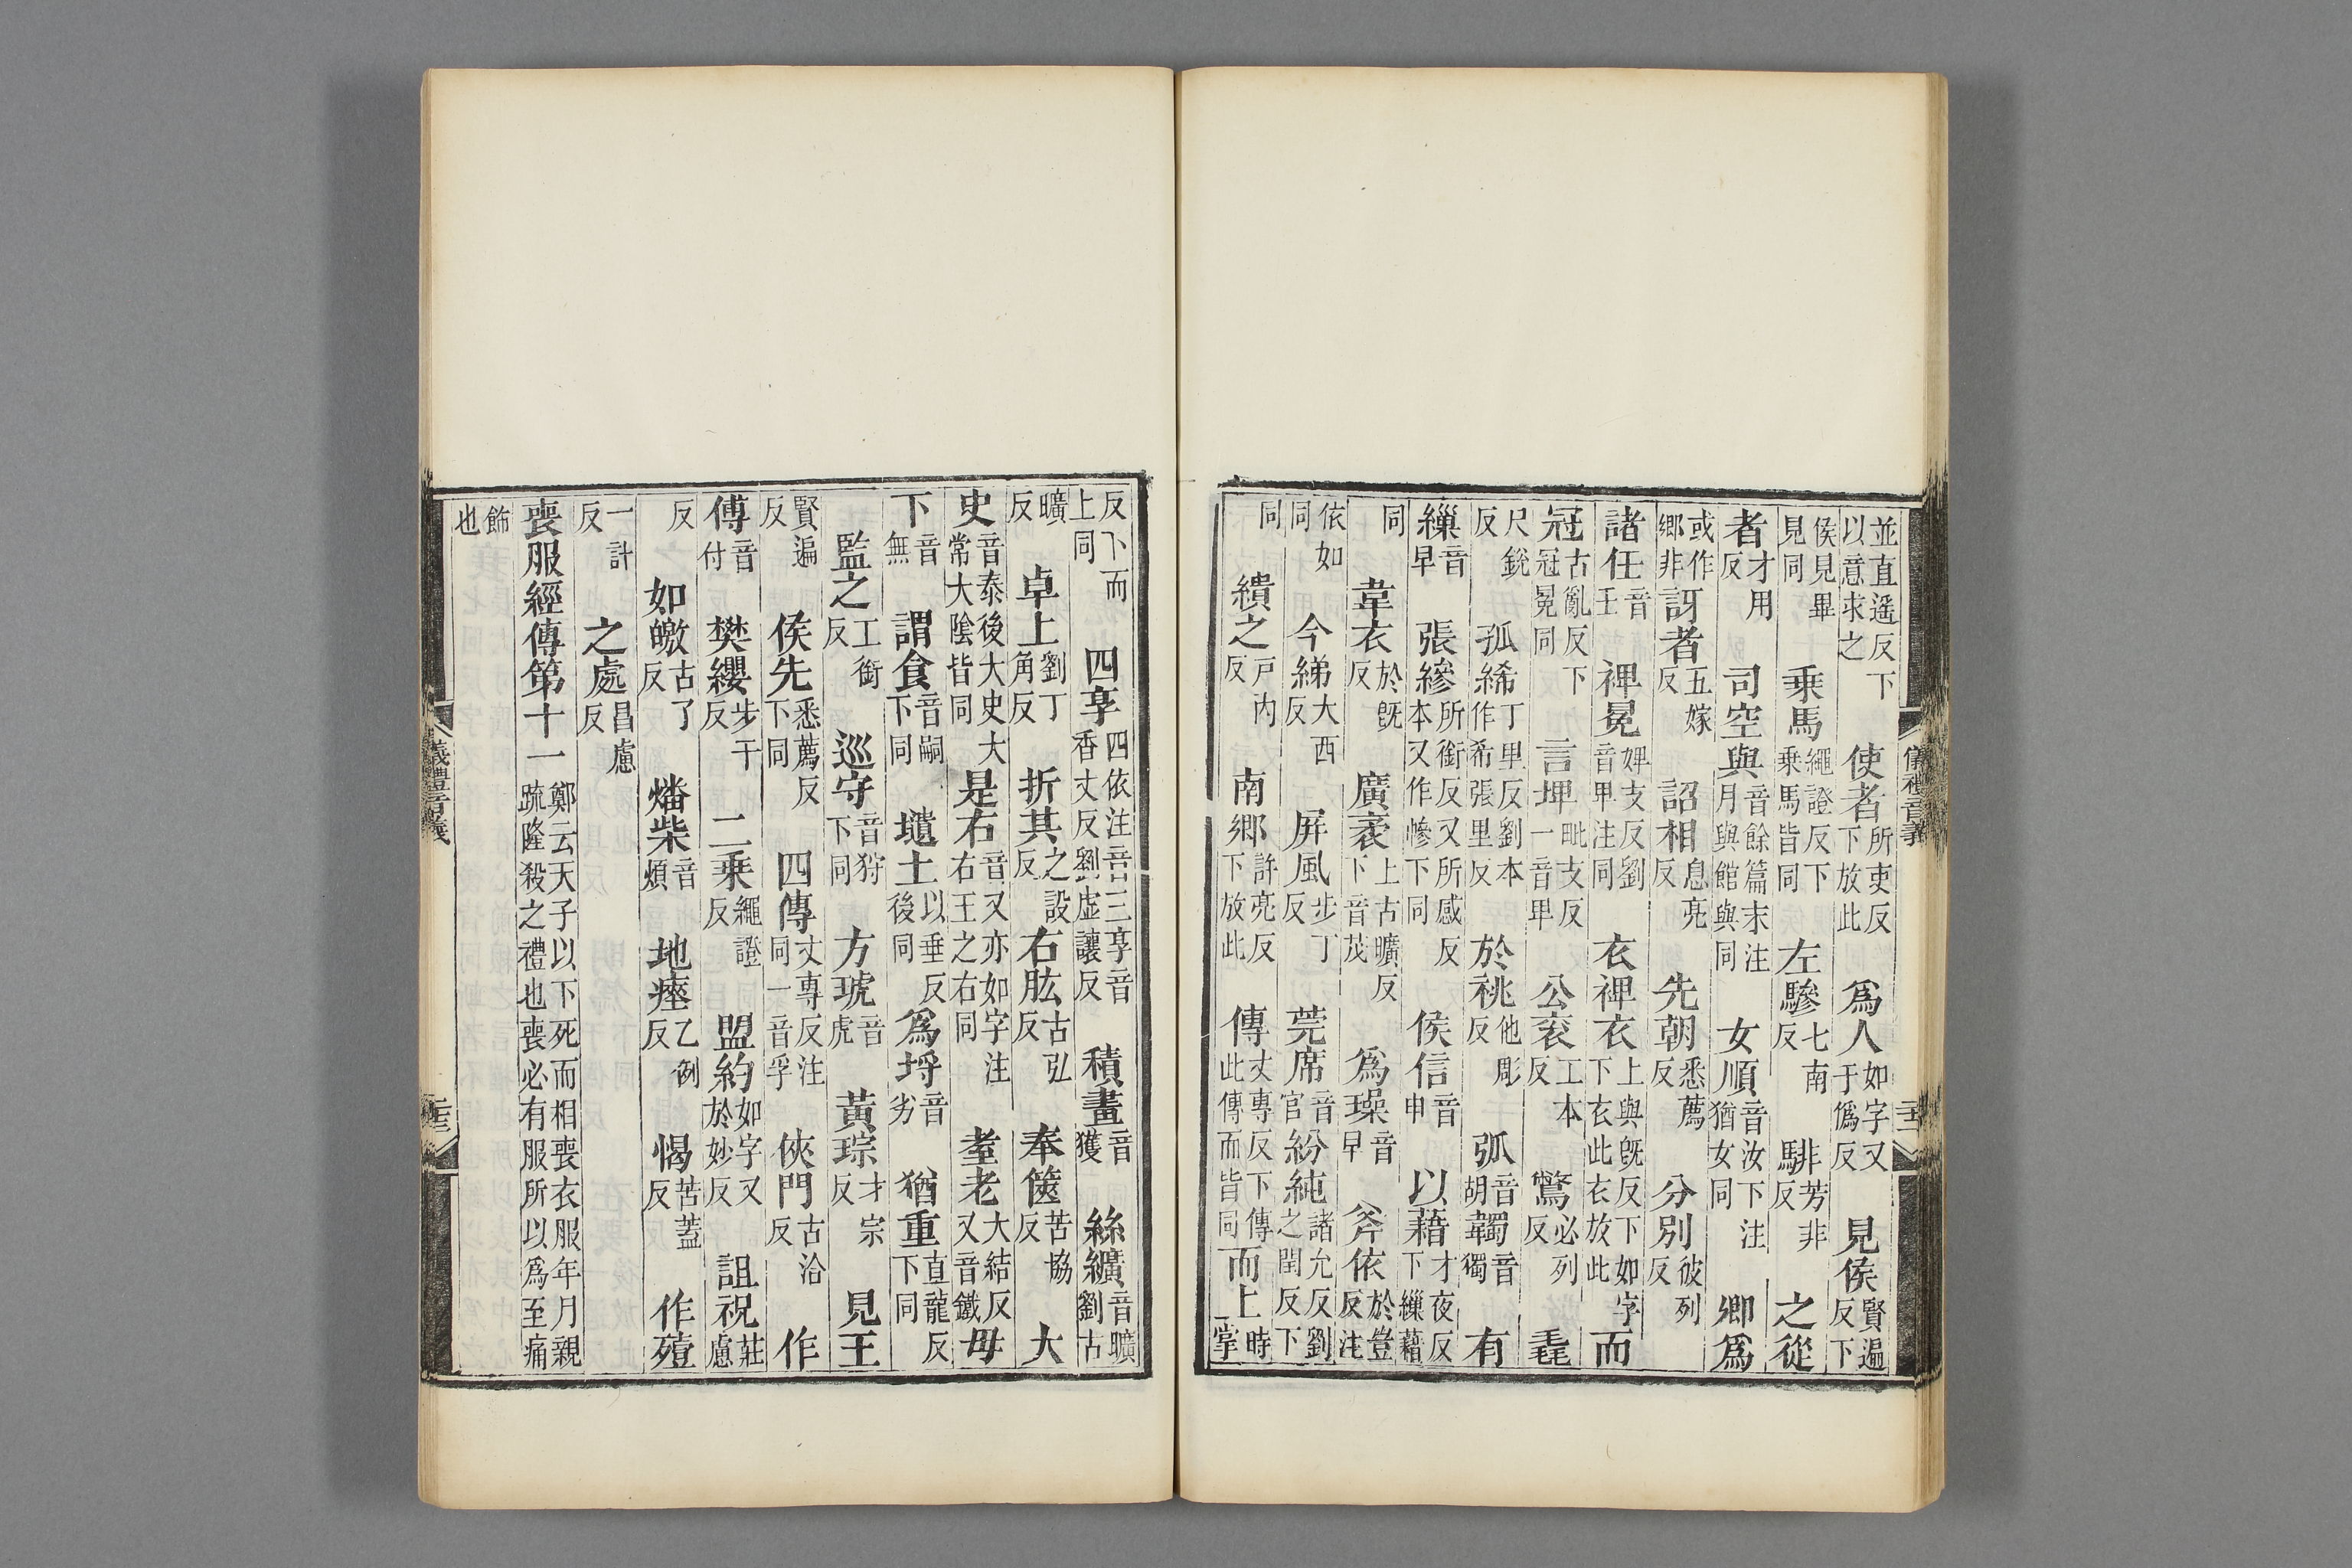 並直遥反下以意求之 使者所吏反下放此 爲人如字又于僞反 見侯賢遍反下
侯見畢見同 乗馬繩證反下乗馬皆同 左驂七南反 騑芳非反 之從
者才用反 司空與音餘篇末注月與館與同 女順音汝下注猶女同 卿爲
或作鄉非訝者五嫁反 詔相息亮反 先朝悉薦反 分別彼列反
諸任音壬 裨冕婢支反劉音甲注同 衣裨衣上與旣反下如字下衣此衣放此 而
冠古亂反下冠冕同 言埤毗支反一音甲 公衮工本反 鷩必列反 毳
尺銳反 孤絺丁里反劉本作希張里反 於祧他彫反 弧音胡韣音獨 有
繅音早 張縿所銜反又所感反本又作幓下同 侯信音申 以藉才夜反下繅藉
同 韋衣於旣反 廣袤上古曠反下音茂 爲璪音早 斧依於豈反注
依如同 今綈大西反 屏風步丁反 莞席音官紛純諸允反劉之閏反下
同 繢之戸内反 南鄉許亮反下放此 傳丈專反下傳此傳而皆同而上時掌
儀禮音義
反下而上同 四享四依注音三享音香丈反劉虛讓反 積畫音獲 絲纊音曠劉古
曠反 卓上劉丁角反 折其之設反 右肱古弘反 奉篋苦協反 大
史音泰後大史大常大陰皆同 是右音又亦如字注右王之右同 耋老大結反又音鐵 毋
下音無 謂食音嗣下同 壝土以垂反後同 爲埒音劣 猶重直龍反下同
監之工銜反 巡守音狩下同 方琥音虎 黃琮才宗反 見王
賢遍反 侯先悉薦反下同 四傳丈專反注同一音孚 俠門古洽反 作
傅音付 樊纓步干反 二乗繩證反 盟約如字又於妙反 詛祝莊慮
反 如皦古了反 燔柴音煩 地瘞乙例反 愒苦蓋反 作殪
一計反 之處昌慮反
喪服經傳第十一鄭云天子以下死而相喪衣服年月親疏隆殺之禮也喪必有服所以爲至痛
飾也
儀禮音義